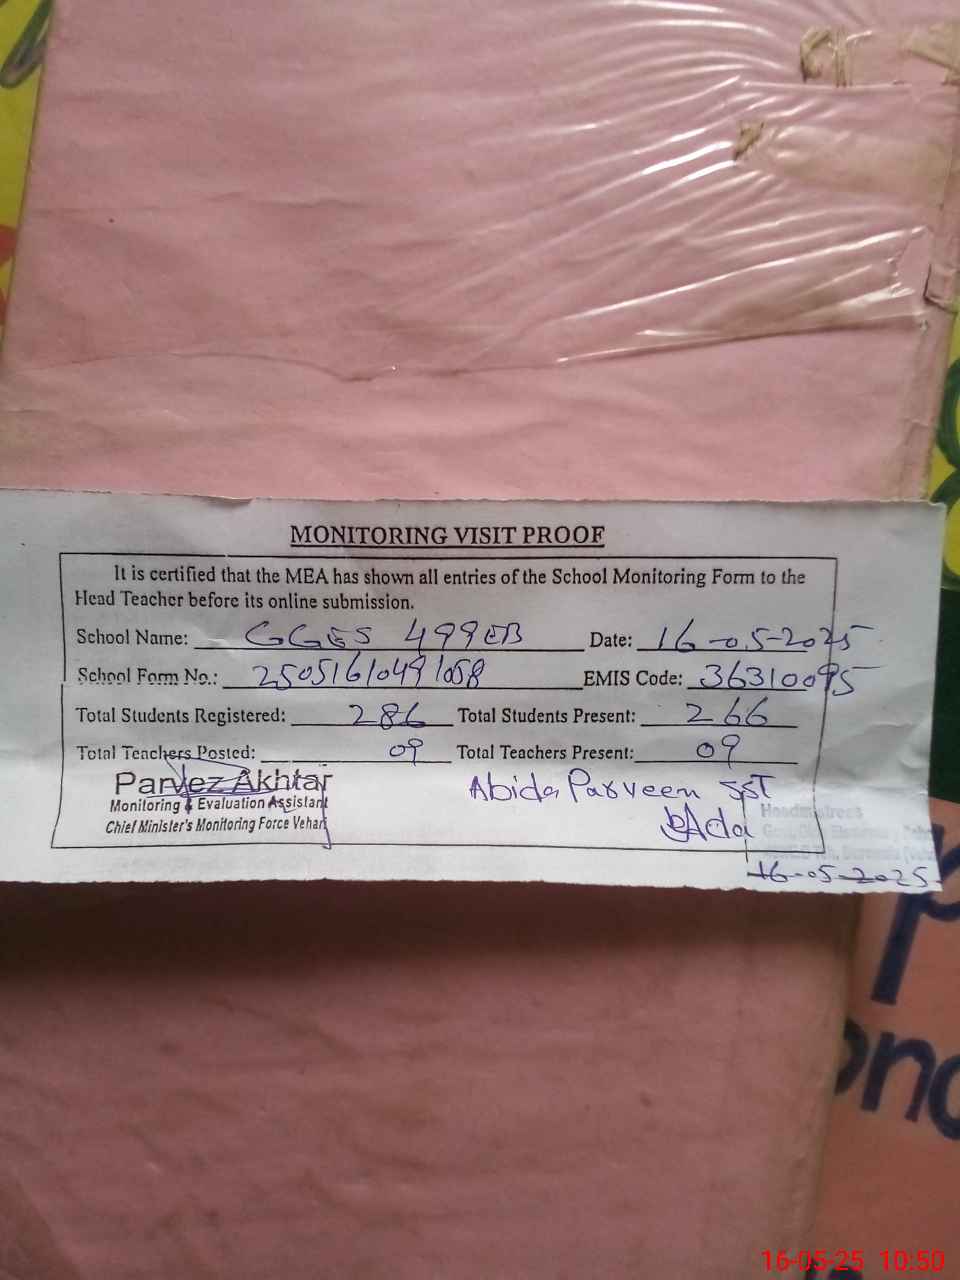 MONITORING VISIT PROOF
It is certified that the MEA has shown all entries of the School Monitoring Form to the
Head Teacher before its online submission.
School Name: GGES 499EB Date: 16-05-2025
School Form No.: 25051610491058 EMIS Code: 36310095
Total Students Registered: 286 Total Students Present: 266
Total Teachers Posted: 09 Total Teachers Present: 09
Parvez Akhtar
Monitoring & Evaluation Assistant
Chief Minister's Monitoring Force Vehari
Abida Parveen SST
Headmistress
16-05-2025
16-05-25 10:50